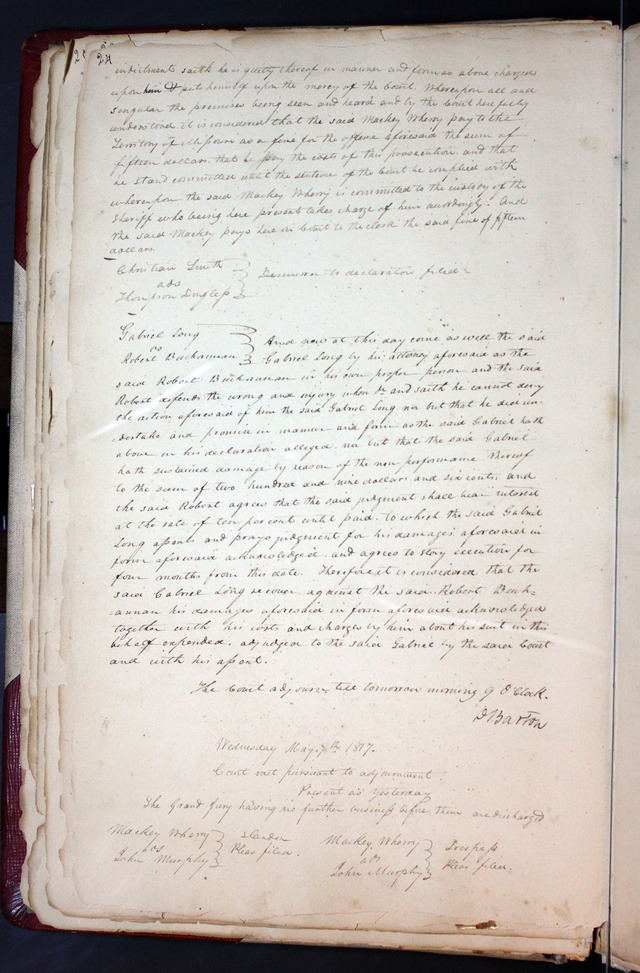 24
indictment saith he is guilty thereof in manner and form as above charged
upon him & puts himself upon the mercy of the Court. Whereupon all and
singular the premises being seen and heard and by the Court here fully
understood it is considered that the said Mackey Wherry pay to the
Territory of Missouri as a fine for the offense aforesaid the sum of
fifteen dollars that he pay the costs of this prosecution and that
he stand committed until the sentence of the Court be complied with
whereupon the said Mackey Wherry is committed to the custody of the
Sheriff who being here present takes charge of him accordingly. And
the said Mackey pays here in Court to the clerk the said fine of fifteen
dollars.
Christian Smith
ads
Thompson
Demurrer to declaration filed
Gabriel Song
vs
Robert Buchannan
And now at this day come as well the said
Gabriel Song by his attorney aforesaid as the
said Robert Buchannan in his own proper person and the said
Robert defends the wrong and injury when &c and saith he cannot deny
the action aforesaid of him the said Gabriel Song nor but that he did un-
dertake and promise in manner and form as the said Gabriel hath
above in his declaration alleged nor but that the said Gabriel
hath sustained damage by reason of the non performance thereof
to the sum of two hundred and nine dollars and six cents and
the said Robert agrees that the said judgment shall bear interest
at the rate of ten per cent until paid to which the said Gabriel
Song assents and prays judgment for his damages aforesaid in
form aforesaid acknowledged and agrees to stay execution for
four months from this date. Therefore it is considered that the
said Gabriel Song recover against the said Robert Buch-
-annan his damages aforesaid in form aforesaid acknowledged
together with his costs and charges by him about his suit in this
behalf expended. adjudged to the said Gabriel by the said Court
and with his assent.
The Court adjourns till tomorrow morning 9 O'Clock.
D Barton
Wednesday May 7th 1817.
Court met pursuant to adjournment
Present as yesterday
The Grand Jury having no further business before them are discharged
Mackey Wherry
ads
John Murphy
Slander
Pleas filed.
Mackey Wherry
ads
John Murphy
Trespass
Pleas filed.